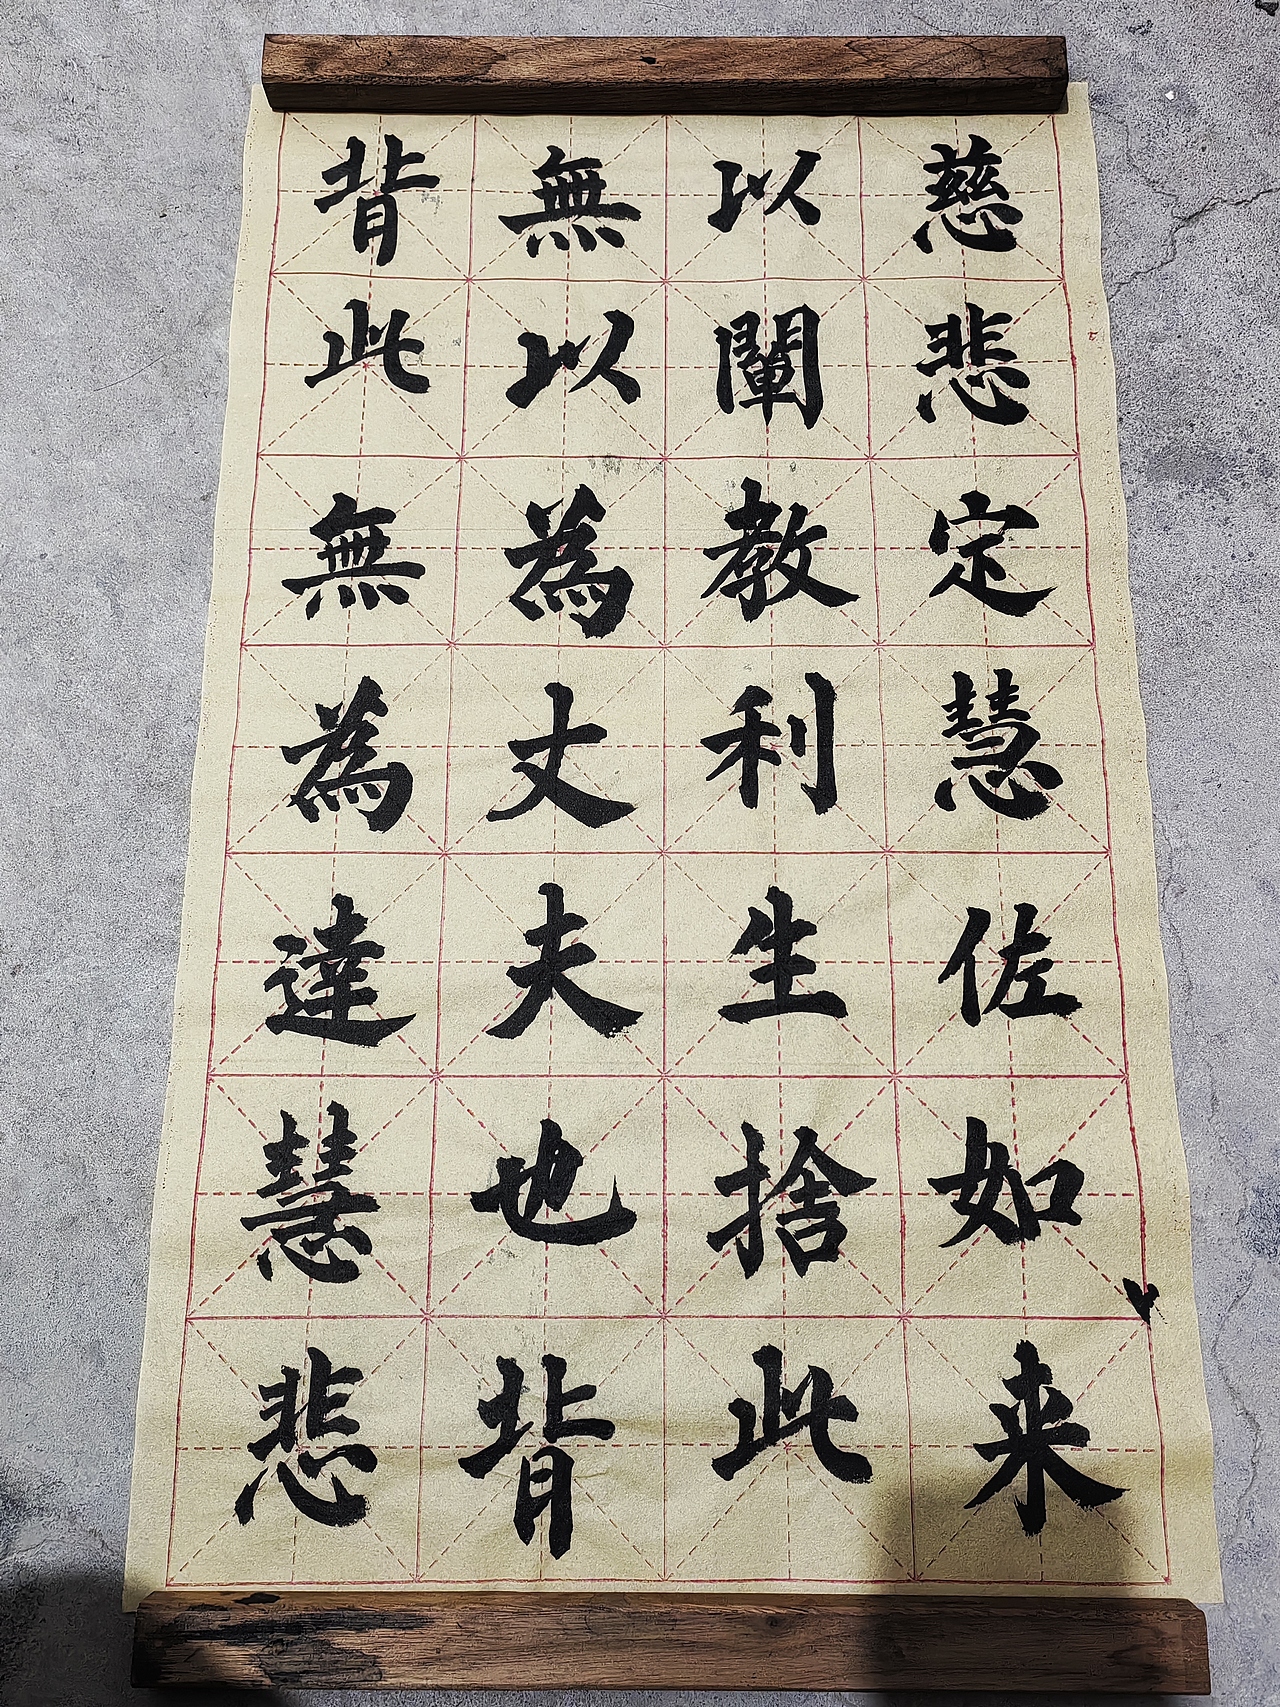 慈悲定慧佐如来
以闡教利生捨此
無以為丈夫也背
背此無為達慧悲